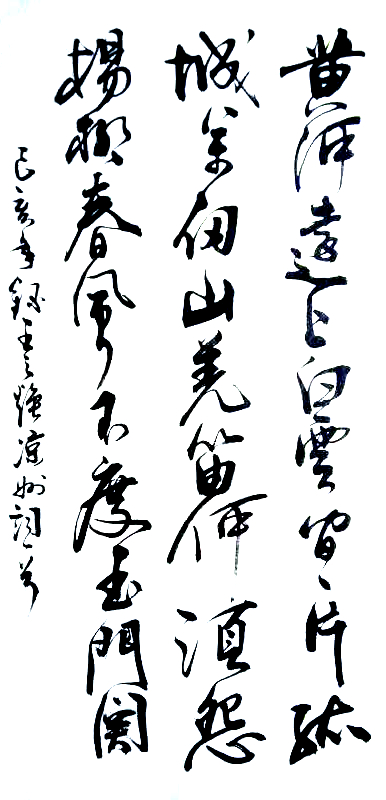 黄河遠上白雲間一片孤
城萬仞山羌笛何須怨
楊柳春風不度玉門關
己亥年錄王之渙涼州詞一首